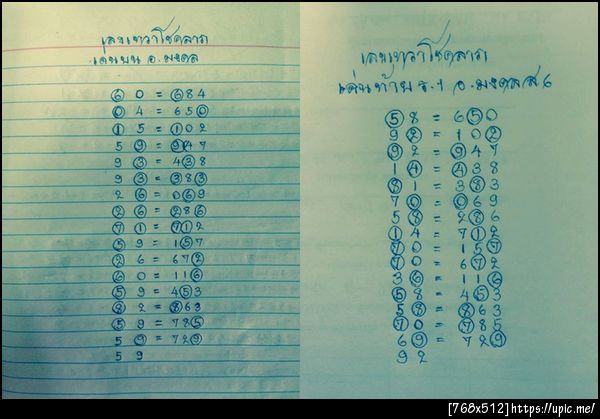 เลขเทวาโชคลาภ
เด่นบน อ.มงคล
6 0 = 684
0 4 = 650
1 5 = 102
5 9 = 947
9 3 = 438
9 3 = 383
2 6 = 069
2 6 = 286
7 1 = 712
5 9 = 157
2 6 = 672
6 0 = 116
5 9 = 453
8 2 = 863
5 9 = 785
5 9 = 729
5 9
เลขเทวาโชคลาภ
อ.มงคล
5 8 = 650
9 2 = 102
9 2 = 947
1 4 = 438
8 1 = 383
7 0 = 069
5 8 = 286
1 4 = 712
7 0 = 157
7 0 = 672
3 6 = 116
5 8 = 453
5 8 = 863
7 0 = 785
6 9 = 729
9 2
[768x512]https://upic.me/